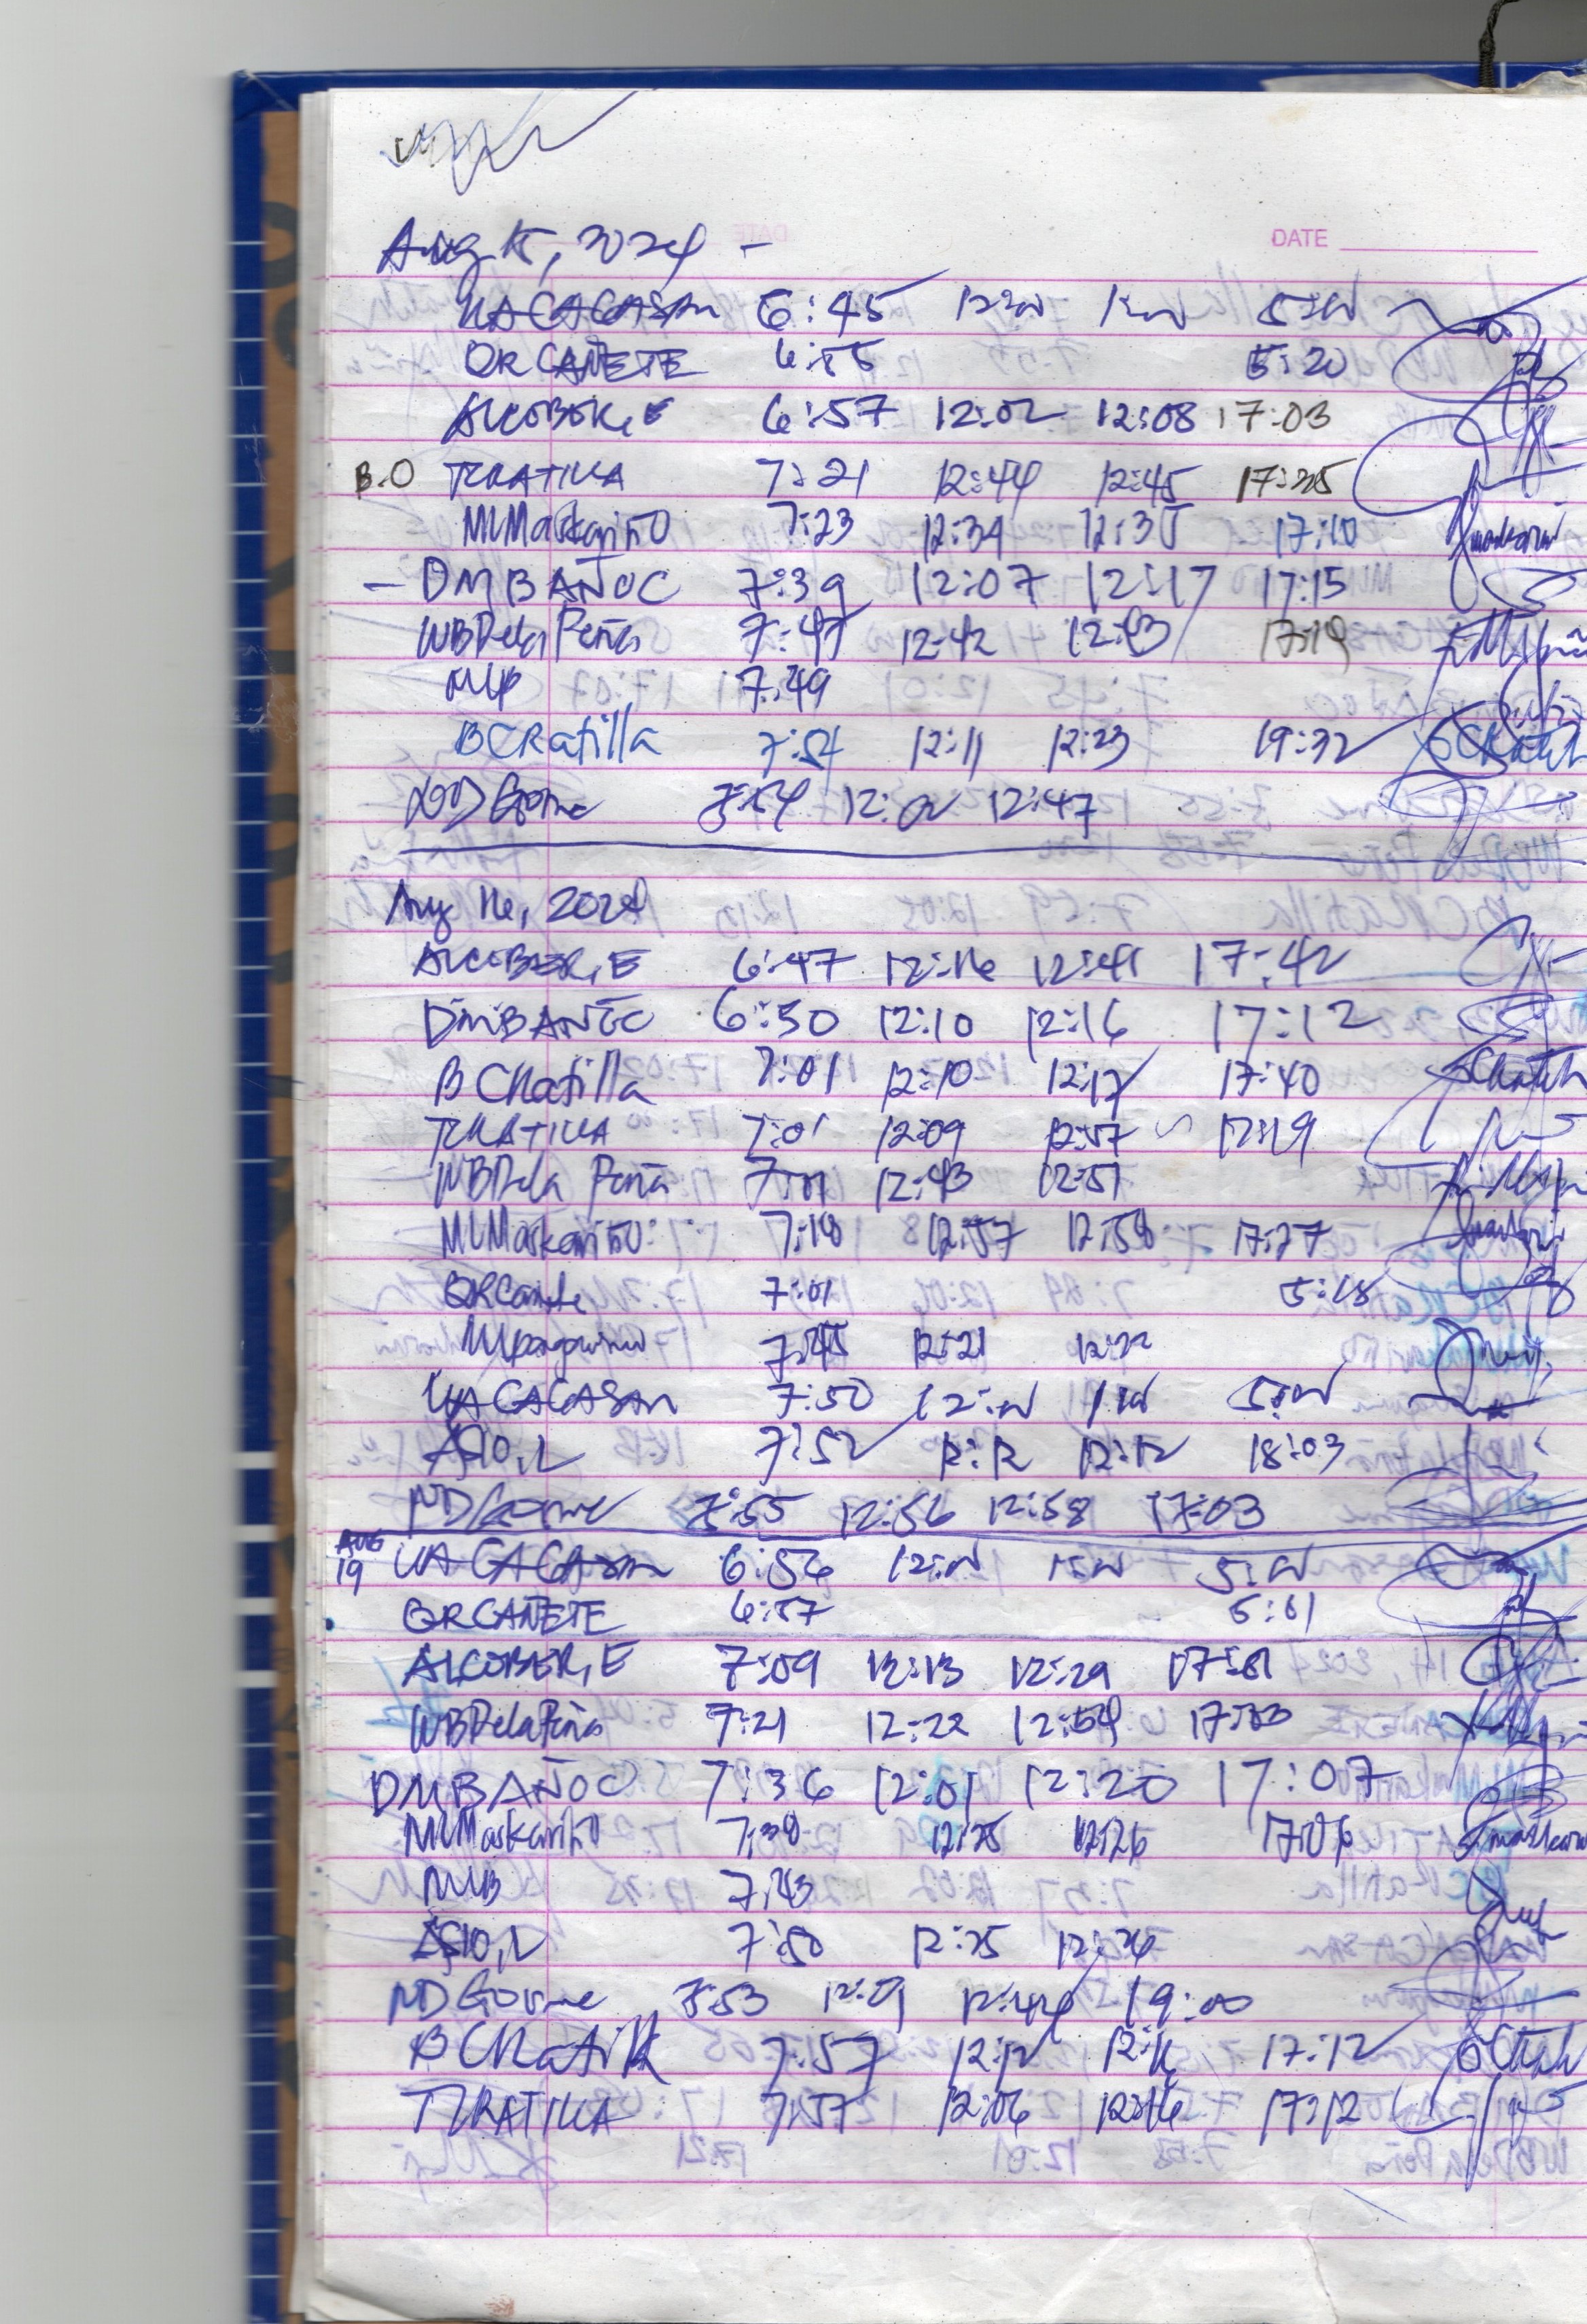 Aug 15, 2024 -
DATE
UACAGASAN 6:45 12:00 1:00 5:00
QRCAÑETE 6:55 5:20
ALCOBER, E 6:57 12:02 12:08 17:03
B.O TCRATILLA 7:21 12:44 12:45 17:25
MLMaskariño 7:23 12:34 12:35 17:10
- DMBAÑOC 7:39 12:07 12:17 17:15
WBDela Peña 12:42 12:43 17:19
7:49
BCRatilla 7:51 12:11 12:23 19:32
NDGome 7:54 12:02 12:47
Aug 16, 2024
ALCOBER, E 6:47 12:16 12:41 17:42
DMBAÑOC 6:50 12:10 12:16 17:12
BCRatilla 7:01 12:10 12:17 17:40
TCRATILLA 7:01 12:09 12:57 17:19
WBDela Peña 12:43 12:51
MLMaskariño 7:18 12:57 12:58 17:27
QRCañete 7:01 5:18
7:45 12:21 12:22
UACAGASAN 7:50 12:00 1:00 5:00
ASIO, L 7:52 12:12 12:12 18:03
NDGome 7:55 12:56 12:58 17:03
AUG 19 UACAGASAN 6:56 12:00 1:00 5:00
QRCAÑETE 6:57 5:01
ALCOBER, E 7:09 12:13 12:29 17:01
WBDelaPeña 7:21 12:22 12:54 17:03
DMBAÑOC 7:36 12:01 12:20 17:07
MLMaskariño 7:38 12:25 12:26 17:06
7:43
ASIO, L 7:50 12:25 12:26
NDGome 7:53 12:01 12:44 19:00
BCRatilla 7:57 12:12 12:16 17:12
TCRATILLA 7:57 12:06 12:16 17:12